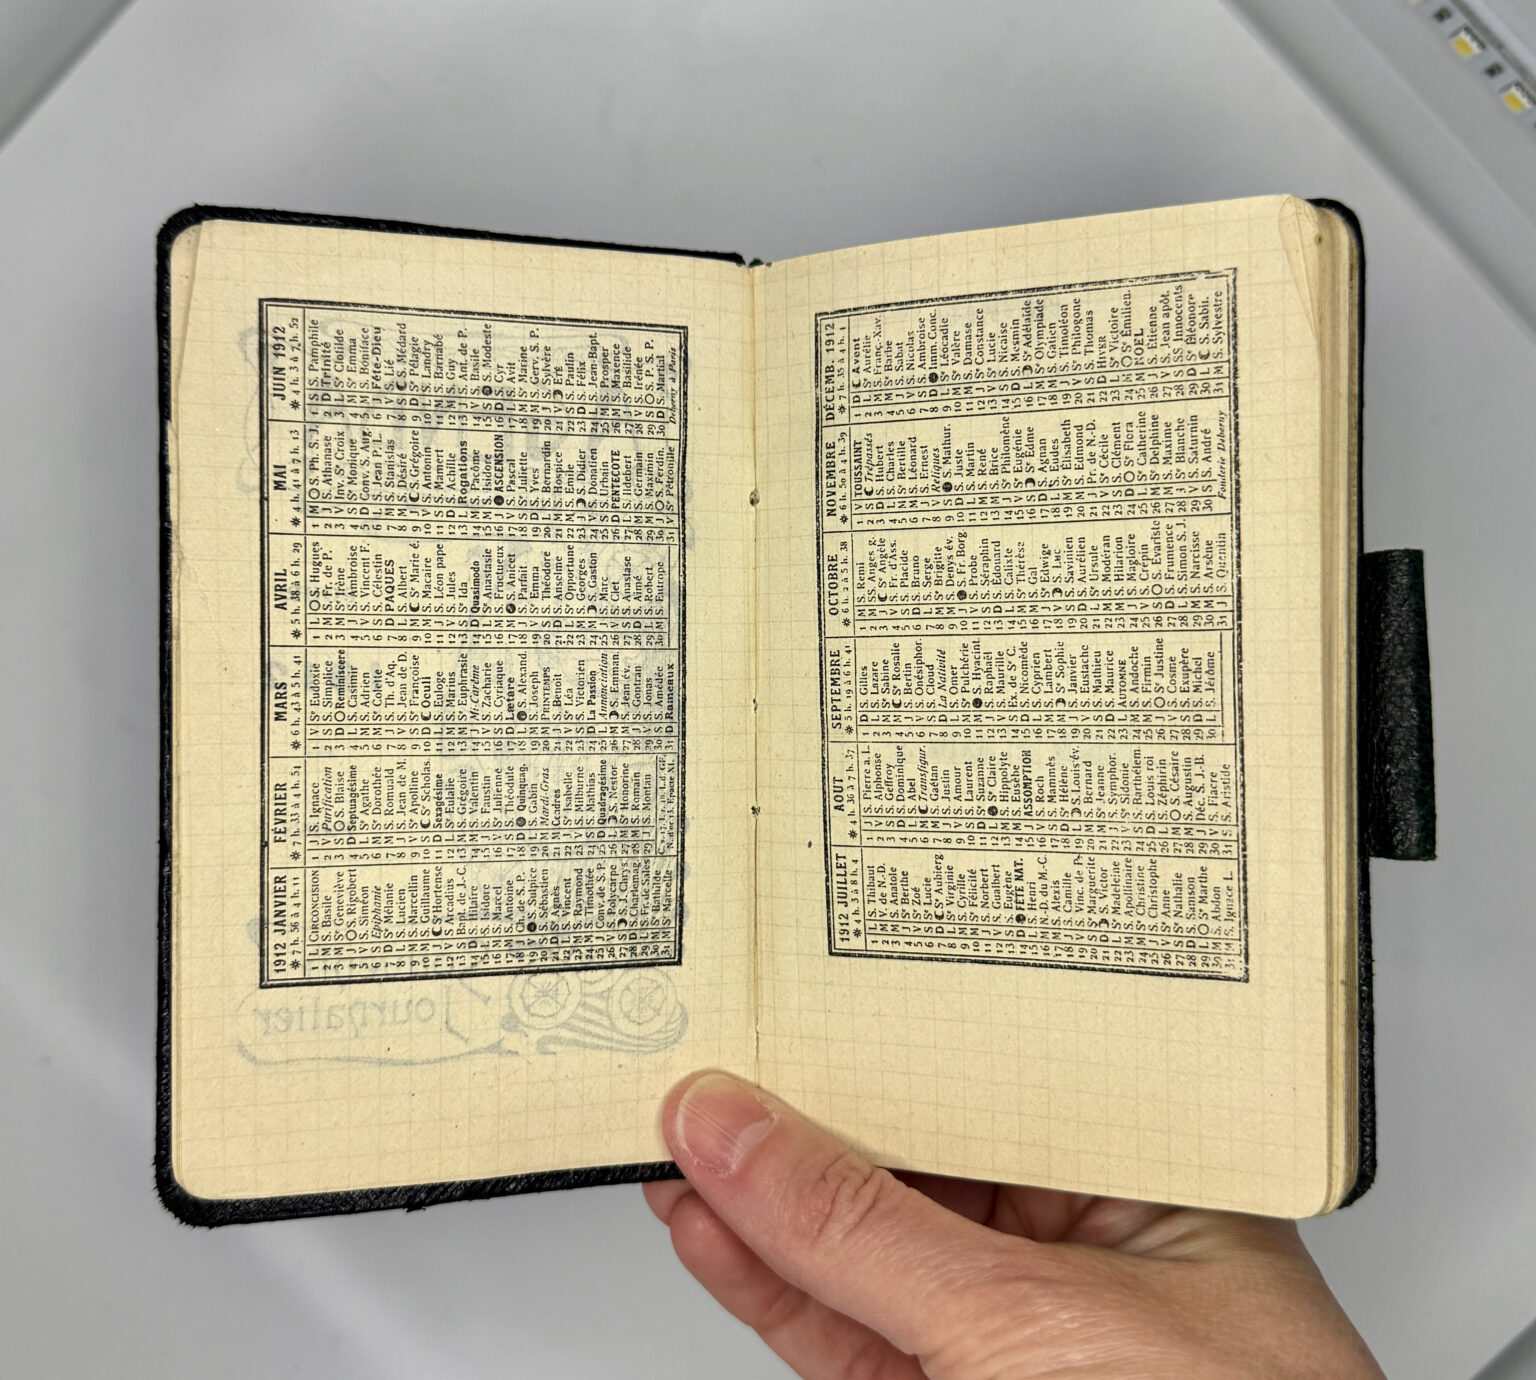 1912 JANVIER
7 h. 56 à 4 h. 11
1 L CIRCONCISION
2 M S. Basile
3 M Sᵉ Geneviève
4 J ○ S. Rigobert
5 V S. Siméon
6 S Epiphanie
7 D Sᵉ Mélanie
8 L S. Lucien
9 M S. Marcellin
10 M S. Guillaume
11 J ☾ Sᵉ Hortense
12 V S. Arcadius
13 S Bapt. de J.-C.
14 D S. Hilaire
15 L S. Isidore
16 M S. Marcel
17 M S. Antoine
18 J Ch. de S. P.
19 V ● S. Sulpice
20 S S. Sébastien
21 D Sᵉ Agnès
22 L S. Vincent
23 M S. Raymond
24 M S. Timothée
25 J Conv. de S. P.
26 V S. Polycarpe
27 S ☽ S. J. Chrys.
28 D S. Charlemag.
29 L S. Fr. de Sales
30 M Sᵉ Bathilde
31 M Sᵉ Marcelle
FÉVRIER
7 h. 33 à 4 h. 51
1 J S. Ignace
2 V Purification
3 S ○ S. Blaise
4 D Septuagésime
5 L Sᵉ Agathe
6 M Sᵉ Dorothée
7 M S. Romuald
8 J S. Jean de M.
9 V Sᵉ Apolline
10 S ☾ Sᵉ Scholas.
11 D Sexagésime
12 L Sᵉ Eulalie
13 M S. Grégoire
14 M S. Valentin
15 J S. Faustin
16 V Sᵉ Julienne
17 S S. Théodule
18 D ● Quinquag.
19 L S. Gabin
20 M Mardi-Gras
21 M Cendres
22 J Sᵉ Isabelle
23 V S. Milburne
24 S S. Mathias
25 D Quadragésime
26 L ☽ S. Nestor
27 M Sᵉ Honorine
28 M S. Romain
29 J S. Montan
MARS
6 h. 43 à 5 h. 41
1 V Sᵉ Eudoxie
2 S S. Simplice
3 D ○ Reminiscere
4 L S. Casimir
5 M S. Adrien
6 M Sᵉ Colette
7 J S. Th. d'Aq.
8 V S. Jean de D.
9 S Sᵉ Françoise
10 D ☾ Oculi
11 L S. Euloge
12 M S. Marius
13 M Sᵉ Euphrasie
14 J Mi-Carême
15 V S. Zacharie
16 S S. Cyriaque
17 D Lætare
18 L ● S. Alexand.
19 M S. Joseph
20 M PRINTEMPS
21 J S. Benoît
22 V Sᵉ Léa
23 S S. Victorien
24 D La Passion
25 L Annonciation
26 M ☽ S. Emman.
27 M S. Jean év.
28 J S. Gontran
29 V S. Jonas
30 S S. Amédée
31 D Rameaux
AVRIL
5 h. 38 à 6 h. 29
1 L ○ S. Hugues
2 M S. Fr. de P.
3 M Sᵉ Irène
4 J S. Ambroise
5 V S. Vincent F.
6 S S. Célestin
7 D PAQUES
8 L S. Albert
9 M ☾ Sᵉ Marie é.
10 M S. Macaire
11 J S. Léon pape
12 V S. Jules
13 S Sᵉ Ida
14 D Quasimodo
15 L Sᵉ Anastasie
16 M S. Fructueux
17 M ● S. Anicet
18 J S. Parfait
19 V Sᵉ Emma
20 S S. Théodore
21 D S. Anselme
22 L Sᵉ Opportune
23 M S. Georges
24 M ☽ S. Gaston
25 J S. Marc
26 V S. Clet
27 S S. Anastase
28 D S. Aimé
29 L S. Robert
30 M S. Eutrope
MAI
4 h. 41 à 7 h. 13
1 M ○ S. Ph. S. J.
2 J S. Athanase
3 V Inv. Sᵉ Croix
4 S Sᵉ Monique
5 D Conv. S. Aug.
6 L S. Jean P. L.
7 M S. Stanislas
8 M S. Désiré
9 J ☾ S. Grégoire
10 V S. Antonin
11 S S. Mamert
12 D S. Achille
13 L Rogations
14 M S. Pacôme
15 M S. Isidore
16 J ● ASCENSION
17 V S. Pascal
18 S Sᵉ Juliette
19 D S. Yves
20 L S. Bernardin
21 M S. Hospice
22 M S. Emile
23 J ☽ S. Didier
24 V S. Donatien
25 S S. Urbain
26 D PENTECOTE
27 L S. Ildebert
28 M S. Germain
29 M S. Maximin
30 J ○ S. Ferdin.
31 V Sᵉ Pétronille
JUIN 1912
4 h. 3 à 7 h. 52
1 S S. Pamphile
2 D Trinité
3 L Sᵉ Clotilde
4 M Sᵉ Emma
5 M S. Boniface
6 J Fête-Dieu
7 V S. Lié
8 S ☾ S. Médard
9 D Sᵉ Pélagie
10 L S. Landry
11 M S. Barnabé
12 M S. Guy
13 J S. Ant. de P.
14 V S. Basile
15 S ● S. Modeste
16 D S. Cyr
17 L S. Avit
18 M Sᵉ Marine
19 M S. Gerv. S. P.
20 J S. Sylvère
21 V ☽ ÉTÉ
22 S S. Paulin
23 D S. Félix
24 L S. Jean-Bapt.
25 M S. Prosper
26 M S. Maxence
27 J S. Basilide
28 V S. Irénée
29 S ○ S. P. S. P.
30 D S. Martial
Deberny à Paris
1912 JUILLET
4 h. 3 à 8 h. 4
1 L S. Thibaut
2 M V. de N.-D.
3 M S. Anatole
4 J Sᵉ Berthe
5 V Sᵉ Zoé
6 S Sᵉ Lucie
7 D ☾ Sᵉ Aubierg
8 L Sᵉ Virginie
9 M S. Cyrille
10 M Sᵉ Félicité
11 J S. Norbert
12 V S. Gualbert
13 S S. Eugène
14 D ● FÊTE NAT.
15 L S. Henri
16 M N. D. du M.-C.
17 M S. Alexis
18 J S. Camille
19 V S. Vinc. de P.
20 S Sᵉ Marguerite
21 D ☽ S. Victor
22 L Sᵉ Madeleine
23 M S. Apollinaire
24 M Sᵉ Christine
25 J S. Christophe
26 V Sᵉ Anne
27 S Sᵉ Nathalie
28 D S. Samson
29 L ○ Sᵉ Marthe
30 M S. Abdon
31 M S. Ignace L.
AOUT
4 h. 36 à 7 h. 37
1 J S. Pierre a. l.
2 V S. Alphonse
3 S S. Geffroy
4 D S. Dominique
5 L S. Abel
6 M ☾ Transfigur.
7 M S. Gaëtan
8 J S. Justin
9 V S. Amour
10 S S. Laurent
11 D Sᵉ Suzanne
12 L ● Sᵉ Claire
13 M S. Hippolyte
14 M S. Eusèbe
15 J ASSOMPTION
16 V S. Roch
17 S S. Mammès
18 D Sᵉ Hélène
19 L ☽ S. Louis év.
20 M S. Bernard
21 M Sᵉ Jeanne
22 J S. Symphor.
23 V Sᵉ Sidonie
24 S S. Barthélem.
25 D S. Louis roi
26 L S. Zéphirin
27 M ○ S. Césaire
28 M S. Augustin
29 J Déc. S. J.-B.
30 V S. Fiacre
31 S S. Aristide
SEPTEMBRE
5 h. 19 à 6 h. 41
1 D S. Gilles
2 L S. Lazare
3 M Sᵉ Sabine
4 M ☾ Sᵉ Rosalie
5 J S. Bertin
6 V S. Onésiphor.
7 S S. Cloud
8 D La Nativité
9 L S. Omer
10 M Sᵉ Pulchérie
11 M ● S. Hyacint.
12 J S. Raphaël
13 V S. Maurille
14 S Ex. de Sᵉ C.
15 D S. Nicomède
16 L S. Cyprien
17 M S. Lambert
18 M ☽ Sᵉ Sophie
19 J S. Janvier
20 V S. Eustache
21 S S. Mathieu
22 D S. Maurice
23 L AUTOMNE
24 M S. Andoche
25 M S. Firmin
26 J ○ Sᵉ Justine
27 V S. Cosme
28 S S. Exupère
29 D S. Michel
30 L S. Jérôme
OCTOBRE
6 h. 2 à 5 h. 38
1 M S. Remi
2 M SS. Anges g.
3 J ☾ Sᵉ Angèle
4 V S. Fr. d'Ass.
5 S S. Placide
6 D S. Bruno
7 L S. Serge
8 M Sᵉ Brigitte
9 M S. Denys év.
10 J ● S. Fr. Borg.
11 V S. Probe
12 S S. Séraphin
13 D S. Édouard
14 L S. Calixte
15 M Sᵉ Thérèse
16 M S. Gal
17 J Sᵉ Edwige
18 V ☽ S. Luc
19 S S. Savinien
20 D S. Aurélien
21 L Sᵉ Ursule
22 M S. Modéran
23 M S. Hilarion
24 J S. Magloire
25 V S. Crépin
26 S ○ S. Evariste
27 D S. Frumence
28 L S. Simon S. J.
29 M S. Narcisse
30 M S. Arsène
31 J S. Quentin
NOVEMBRE
6 h. 50 à 4 h. 39
1 V TOUSSAINT
2 S ☾ Trépassés
3 D S. Hubert
4 L S. Charles
5 M Sᵉ Bertille
6 M S. Léonard
7 J S. Ernest
8 V Reliques
9 S ● S. Mathur.
10 D S. Juste
11 L S. Martin
12 M S. René
13 M S. Brice
14 J Sᵉ Philomène
15 V Sᵉ Eugénie
16 S ☽ Sᵉ Edme
17 D S. Agnan
18 L S. Eudes
19 M Sᵉ Elisabeth
20 M S. Edmond
21 J Pr. de N.-D.
22 V Sᵉ Cécile
23 S S. Clément
24 D ○ Sᵉ Flora
25 L Sᵉ Catherine
26 M Sᵉ Delphine
27 M S. Maxime
28 J Sᵉ Blanche
29 V S. Saturnin
30 S S. André
Fonderie Deberny
DÉCEMB. 1912
7 h. 35 à 4 h. 1
1 D ☾ Avent
2 L Sᵉ Aurélie
3 M S. Franç.-Xav.
4 M Sᵉ Barbe
5 J S. Sabat
6 V S. Nicolas
7 S S. Ambroise
8 D ● Imm. Conc.
9 L Sᵉ Léocadie
10 M S. Valère
11 M S. Damase
12 J S. Constance
13 V Sᵉ Lucie
14 S S. Nicaise
15 D S. Mesmin
16 L ☽ Sᵉ Adélaïde
17 M Sᵉ Olympiade
18 M S. Gatien
19 J S. Timoléon
20 V Sᵉ Philogone
21 S S. Thomas
22 D HIVER
23 L Sᵉ Victoire
24 M ○ S. Émilien.
25 M NOEL
26 J S. Etienne
27 V S. Jean apôt.
28 S SS. Innocents
29 D Sᵉ Éléonore
30 L ☾ S. Sabin.
31 M S. Sylvestre
Journalier